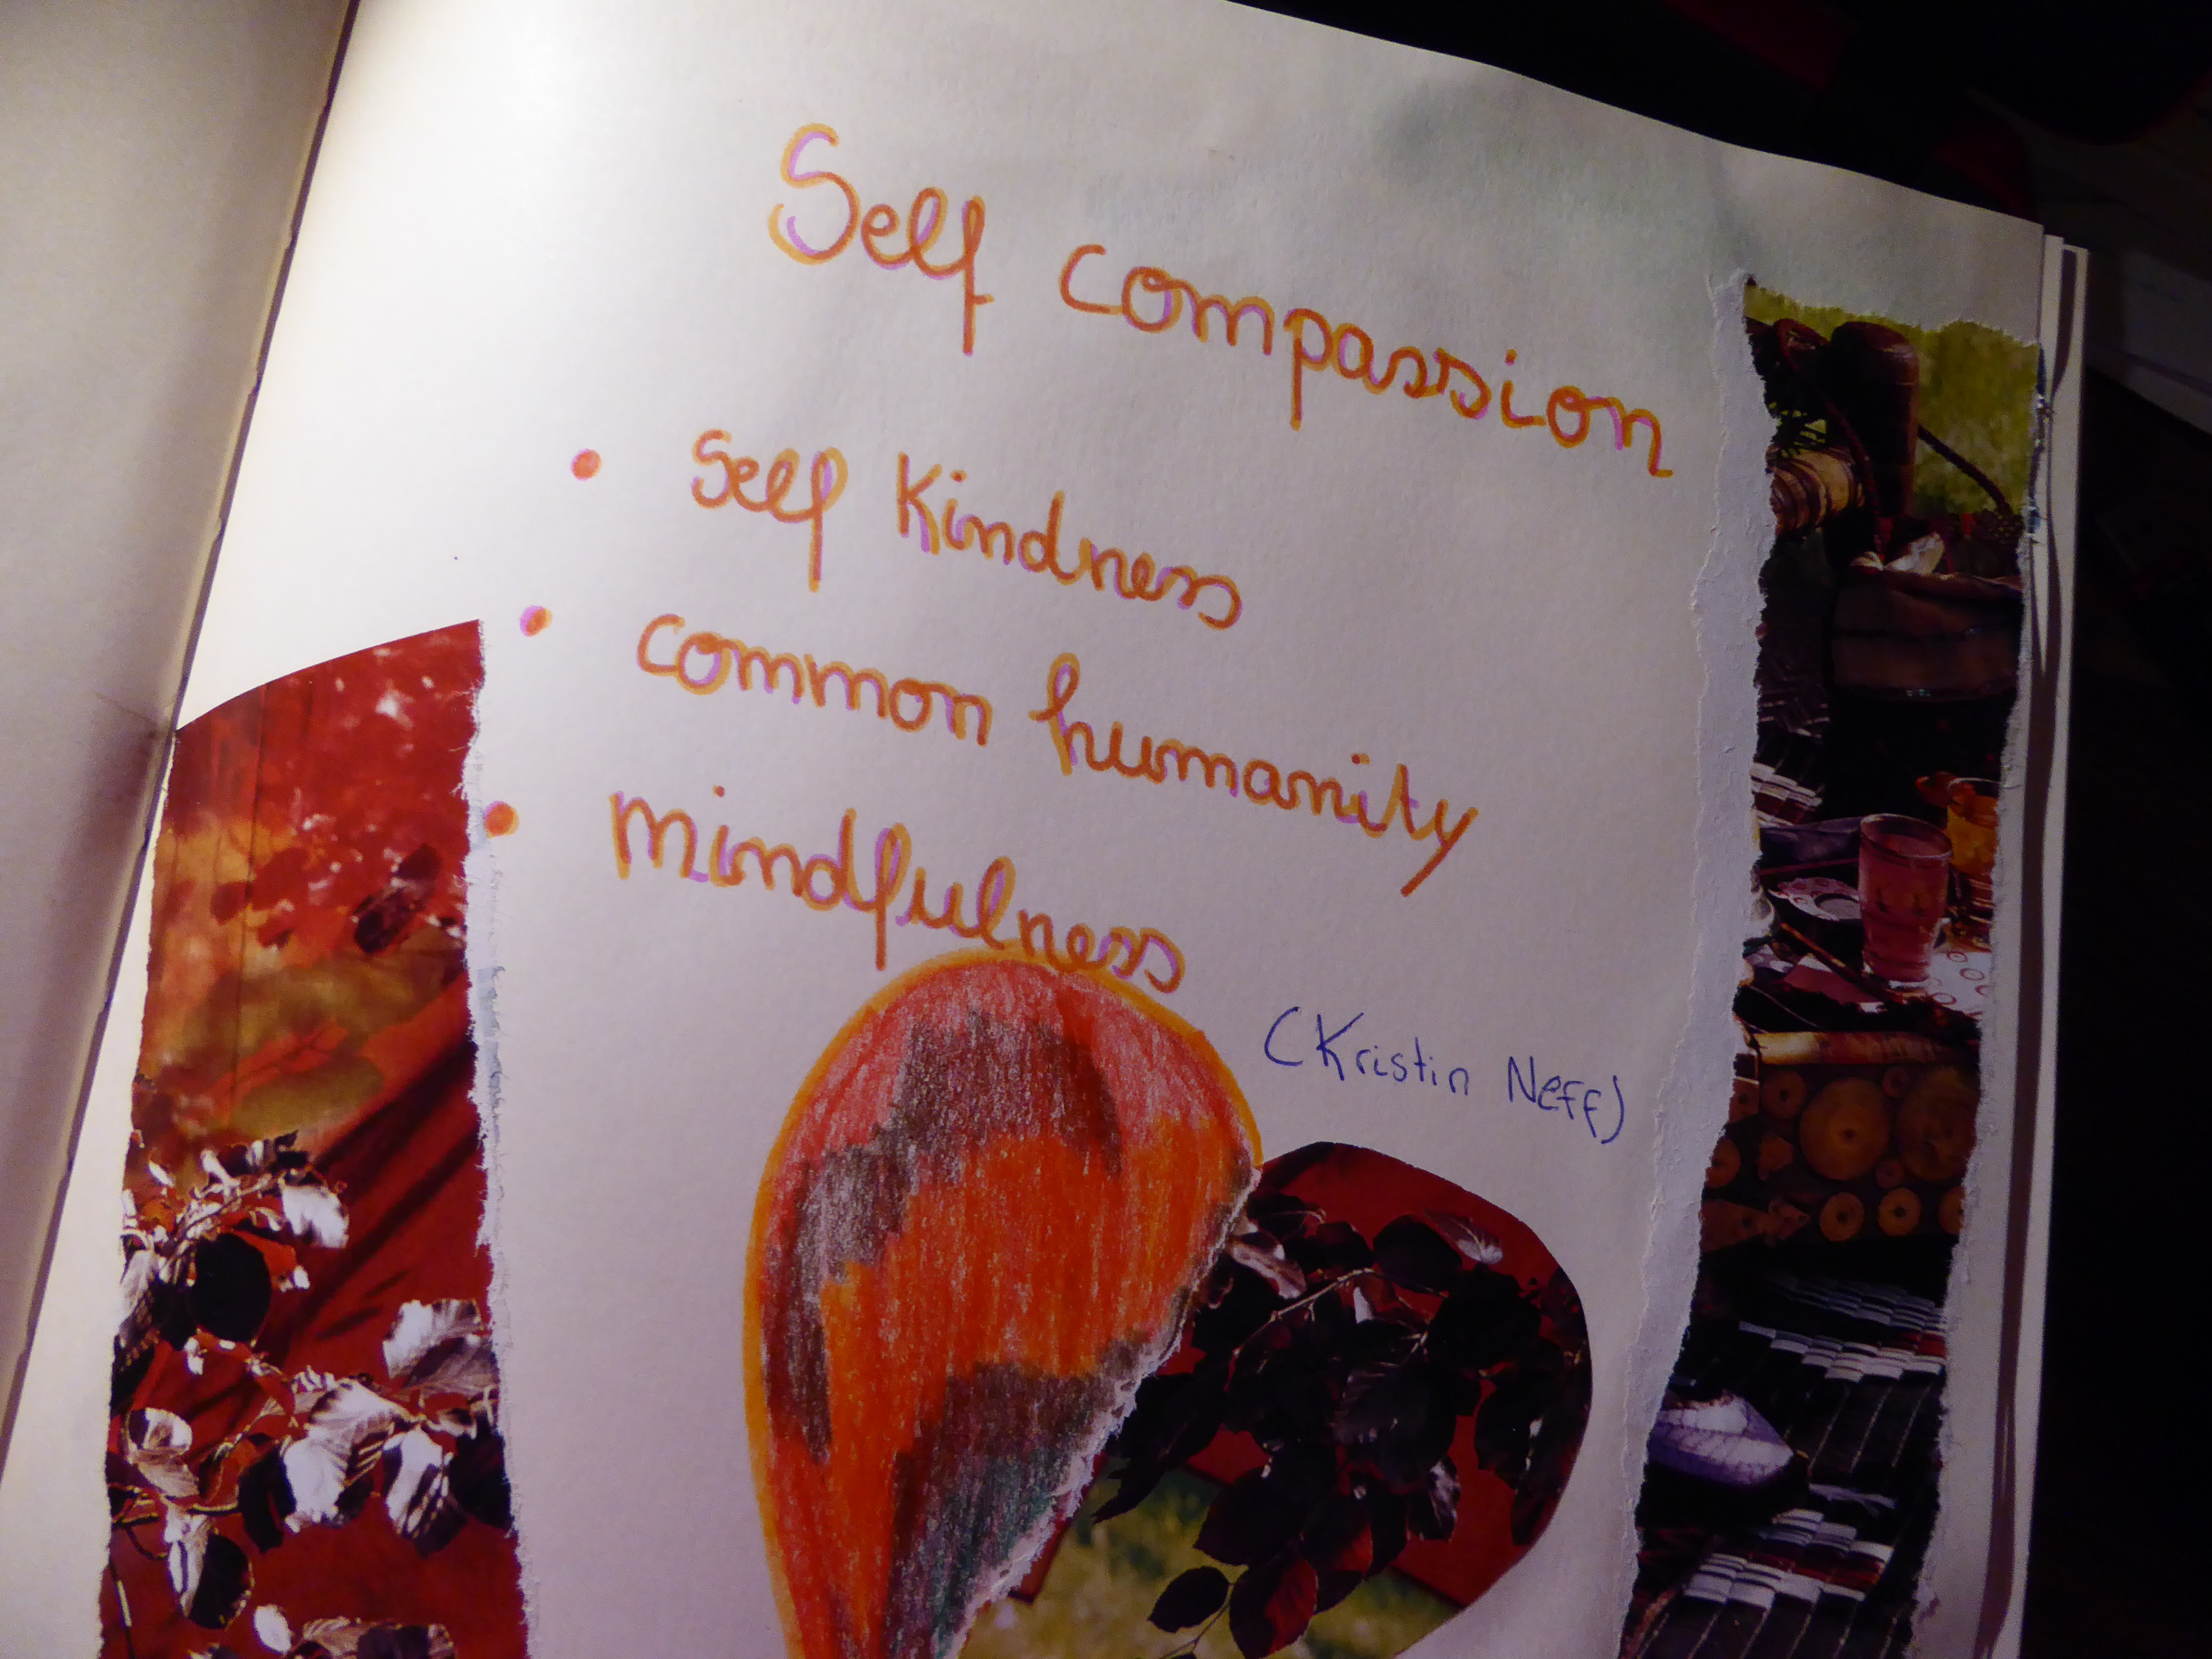 Self compassion
• Self Kindness
• common humanity
• mindfulness
(Kristin Neff)